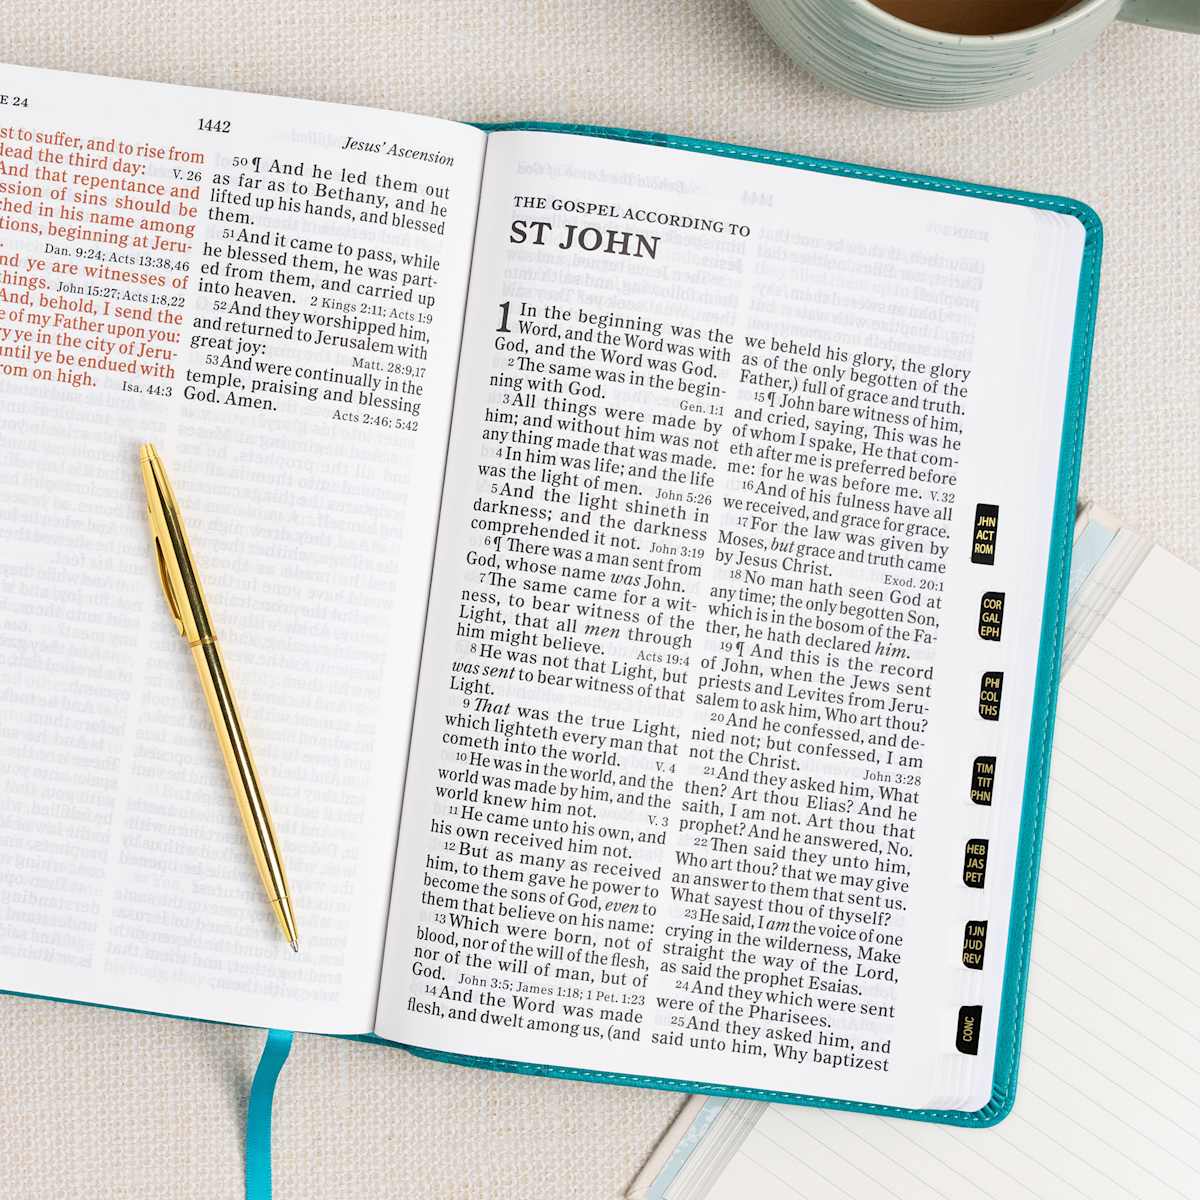 E 24
1442
Jesus' Ascension
st to suffer, and to rise from
dead the third day: V. 26
And that repentance and
ssion of sins should be
ched in his name among
tions, beginning at Jeru-
. Dan. 9:24; Acts 13:38,46
nd ye are witnesses of
things. John 15:27; Acts 1:8,22
And, behold, I send the
e of my Father upon you:
ry ye in the city of Jeru-
until ye be endued with
rom on high. Isa. 44:3
50 ¶ And he led them out
as far as to Bethany, and he
lifted up his hands, and blessed
them.
51 And it came to pass, while
he blessed them, he was part-
ed from them, and carried up
into heaven. 2 Kings 2:11; Acts 1:9
52 And they worshipped him,
and returned to Jerusalem with
great joy: Matt. 28:9,17
53 And were continually in the
temple, praising and blessing
God. Amen. Acts 2:46; 5:42
THE GOSPEL ACCORDING TO
ST JOHN
1 In the beginning was the
Word, and the Word was with
God, and the Word was God.
2 The same was in the begin-
ning with God. Gen. 1:1
3 All things were made by
him; and without him was not
any thing made that was made.
4 In him was life; and the life
was the light of men. John 5:26
5 And the light shineth in
darkness; and the darkness
comprehended it not. John 3:19
6 ¶ There was a man sent from
God, whose name was John.
7 The same came for a wit-
ness, to bear witness of the
Light, that all men through
him might believe. Acts 19:4
8 He was not that Light, but
was sent to bear witness of that
Light.
9 That was the true Light,
which lighteth every man that
cometh into the world. V. 4
10 He was in the world, and the
world was made by him, and the
world knew him not. V. 3
11 He came unto his own, and
his own received him not.
12 But as many as received
him, to them gave he power to
become the sons of God, even to
them that believe on his name:
13 Which were born, not of
blood, nor of the will of the flesh,
nor of the will of man, but of
God. John 3:5; James 1:18; 1 Pet. 1:23
14 And the Word was made
flesh, and dwelt among us, (and
we beheld his glory, the glory
as of the only begotten of the
Father,) full of grace and truth.
15 ¶ John bare witness of him,
and cried, saying, This was he
of whom I spake, He that com-
eth after me is preferred before
me: for he was before me. V. 32
16 And of his fulness have all
we received, and grace for grace.
17 For the law was given by
Moses, but grace and truth came
by Jesus Christ. Exod. 20:1
18 No man hath seen God at
any time; the only begotten Son,
which is in the bosom of the Fa-
ther, he hath declared him.
19 ¶ And this is the record
of John, when the Jews sent
priests and Levites from Jeru-
salem to ask him, Who art thou?
20 And he confessed, and de-
nied not; but confessed, I am
not the Christ. John 3:28
21 And they asked him, What
then? Art thou Elias? And he
saith, I am not. Art thou that
prophet? And he answered, No.
22 Then said they unto him,
Who art thou? that we may give
an answer to them that sent us.
What sayest thou of thyself?
23 He said, I am the voice of one
crying in the wilderness, Make
straight the way of the Lord,
as said the prophet Esaias.
24 And they which were sent
were of the Pharisees.
25 And they asked him, and
said unto him, Why baptizest
JHN
ACT
ROM
COR
GAL
EPH
PHI
COL
THS
TIM
TIT
PHN
HEB
JAS
PET
1JN
JUD
REV
CONC